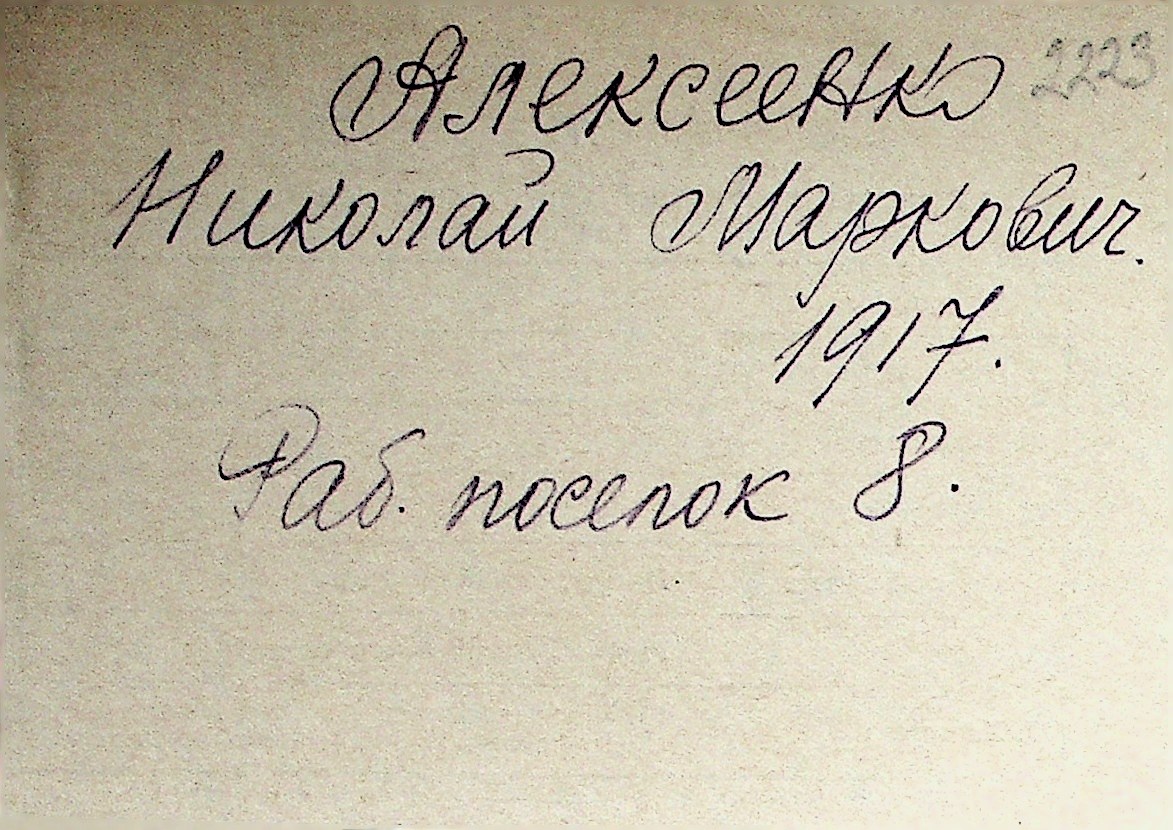 Алексеенко 2223
Николай Маркович.
1917.
Раб. поселок 8.